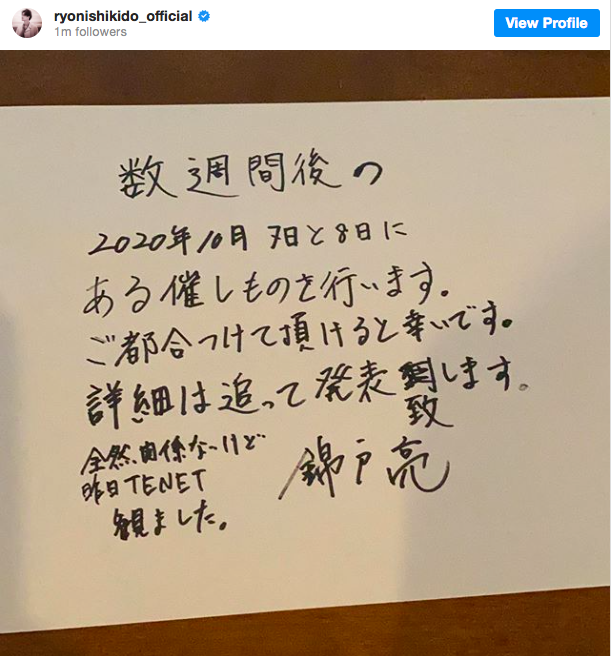 ryonishikido_official
1m followers
View Profile
数週間後の
2020年10月7日と8日に
ある催しものを行います。
ご都合つけて頂けると幸いです。
詳細は追って発表致します。
全然、関係な〜けど
昨日TENET
観ました。
錦戸亮